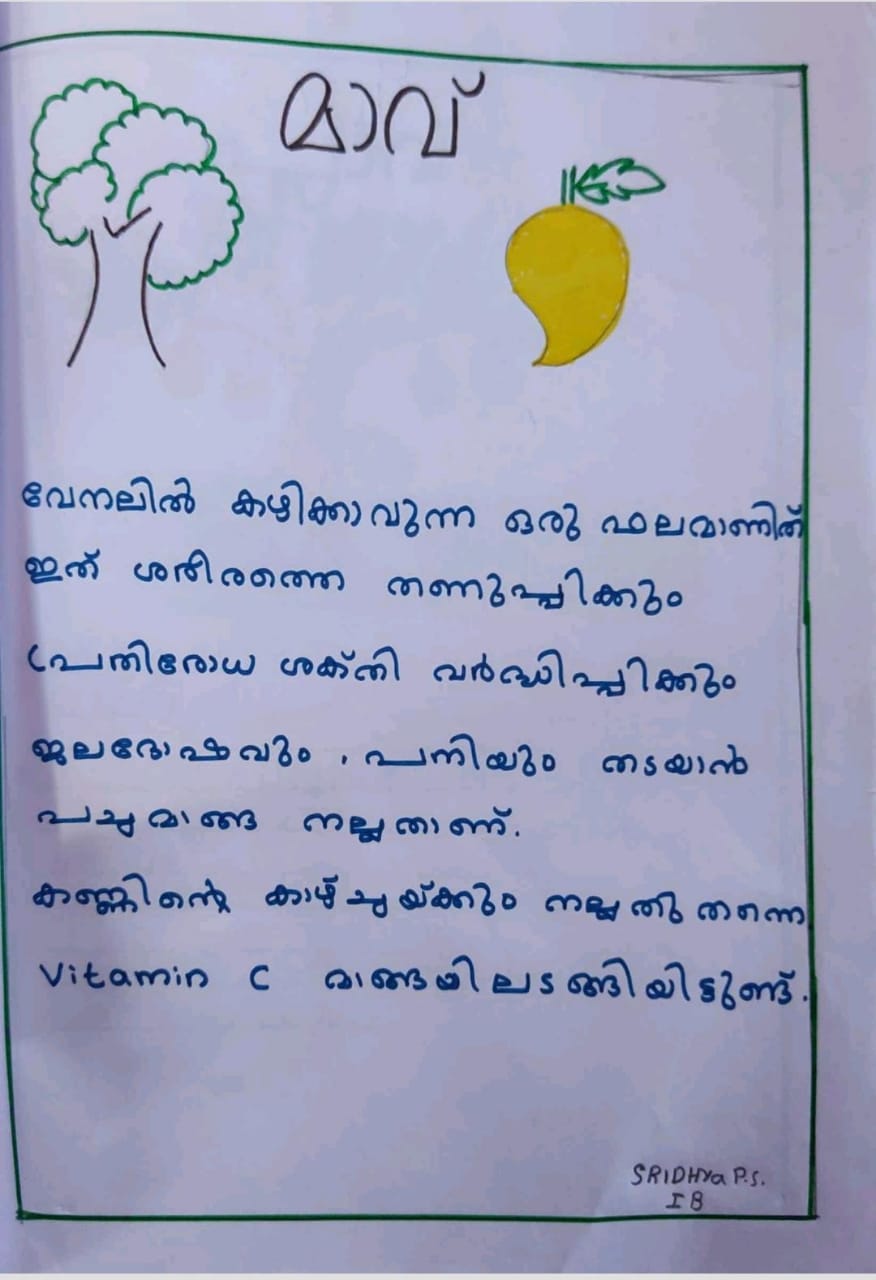 മാവ്
വേനലിൽ കഴിക്കാവുന്ന ഒരു ഫലമാണിത്
ഇത് ശരീരത്തെ തണുപ്പിക്കും
പ്രതിരോധ ശക്തി വർദ്ധിപ്പിക്കും
ജലദോഷവും , പനിയും തടയാൻ
പച്ചമാങ്ങ നല്ലതാണ്.
കണ്ണിന്റെ കാഴ്ച്ചയ്ക്കും നല്ലതു തന്നെ
Vitamin C മാങ്ങയിലടങ്ങിയിട്ടുണ്ട്.
SRIDHYA P.S.
I B